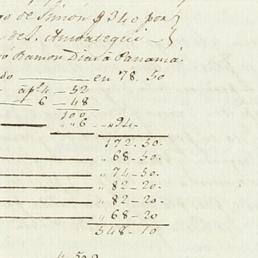 go de Simon $340 por
de I. Amategui
ó Ramon Diaz a Panama.
do — en 78. 50
ap.s 4 — 52
6 — 48
100
" 6 " 94 -
172. 50.
" 68 - 50.
" 74 - 50.
" 82 - 20 -
" 82 - 20 -
" 68 - 20
548 - 10